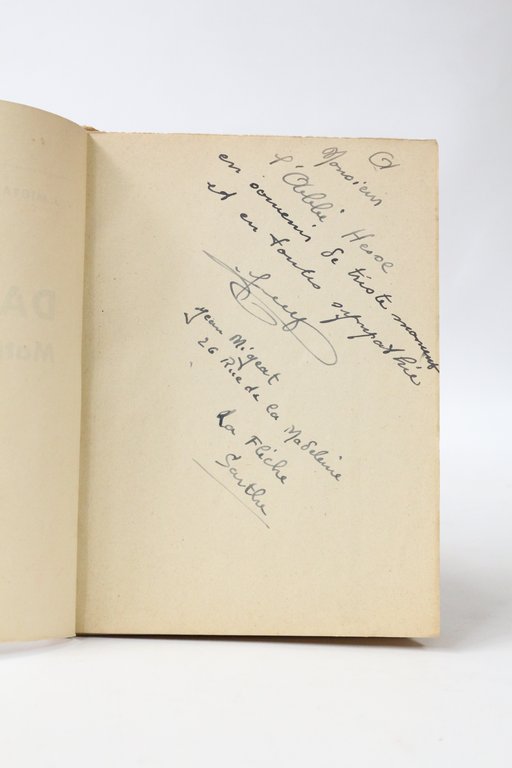 A
Monsieur
l'Abbé Hervé
en souvenir de triste moment
et en toutes sympathie
Jean Migeat
26 Rue de la Madeleine
La Flèche
Sarthe
DA